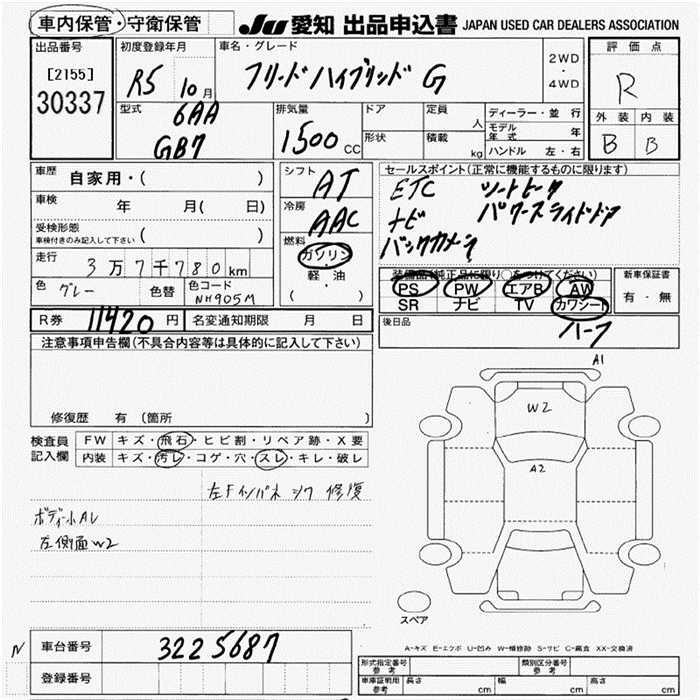 車内保管・守衛保管 JU 愛知 出品申込書 JAPAN USED CAR DEALERS ASSOCIATION
出品番号 初度登録年月 車名・グレード 2WD・4WD 評価点
[2155] R5 10月 フリードハイブリッド G R
30337
型式 6AA 排気量 ドア 定員 人 ディーラー・並行 外装 内装
GB7 1500cc 形状 積載 kg モデル年式 年 B B
ハンドル 左・右
車歴 自家用・( ) シフト AT セールスポイント(正常に機能するものに限ります)
車検 年 月( 日) 冷房 AAC ETC シートヒータ
受検形態 ( ) ナビ パワースライドドア
車検付きのみ記入して下さい 燃料 ガソリン バックカメラ
走行 3万7千780km 軽・油 装備品(純正品に限り○をつけてください) 新車保証書
色 グレー 色替 色コード NH905M ( ) PS PW エアB AW 有・無
SR ナビ TV カワシート
R券 11420円 名変通知期限 月 日 後日品 ハーフ
注意事項申告欄(不具合内容等は具体的に記入して下さい)
A1
W2
A2
修復歴 有 (箇所 )
検査員記入欄 FW キズ・飛石・ヒビ割・リペア跡・X要
内装 キズ・汚レ・コゲ・穴・スレ・キレ・破レ
左Fインパネ シワ 修復
ボディー小AL
左側面W2
スペア
A-キズ E-エクボ U-凹み W-補修跡 S-サビ C-腐食 XX-交換済
N 車台番号 3225687
登録番号
型式指定番号 参考 類別区分番号 参考
車庫証明用 参考 長さ cm 幅 cm 高さ cm